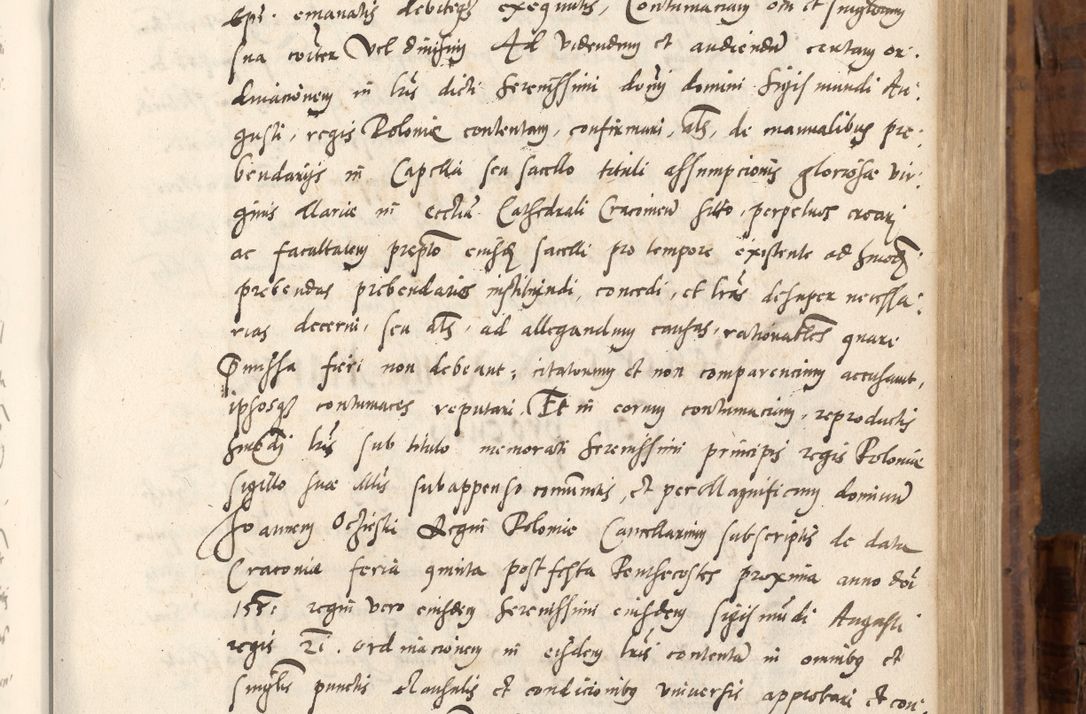 Epi. emanatis debiteque exequutis, Contumaciam om et singulorum
sua coniter Vel divisim Ad videndum et audiendum certam or:
dinacionem in lris dicti Serenissimi domini domini Sigismundi Au:
gusti, regis Poloniæ contentam, confirmari, als, de manualibus pre:
bendariis in Capella seu sacello tituli assumpcionis gloriosæ vir:
ginis Mariæ in ecclia Cathedrali Cracovien sitto, perpetuos creari
ac facultatem prepto eiusdem sacelli pro tempore existente ad hmoi
prebendas prebendarios instituendi, concedi, et lras desuper necessa:
rias decerni, seu als, ad allegandum causas, rationabiles quare
Præmissa fieri non debeant; citatorum et non comparencium accusavit,
ipsosque contumaces reputari. Et in eorum contumacium, reproductis
hmoi lris sub titulo memorati Serenissimi principis regis Poloniæ
sigillo suæ Mtis subappenso comunitis, et per Magnificum dominum
Joannem Ochiesti Regni Poloniæ Cancellarium subscriptis de data
Cracoviæ feria quinta post festa Penthecostes proxima anno doi
1551 regni vero eiusdem Serenissimi eiusdem Sigismundi Augusti
regis 22. ordinacionem in eisdem lris contentam in omnibus et
singulis punctis clausulis et condicionibus universis approbari et con: